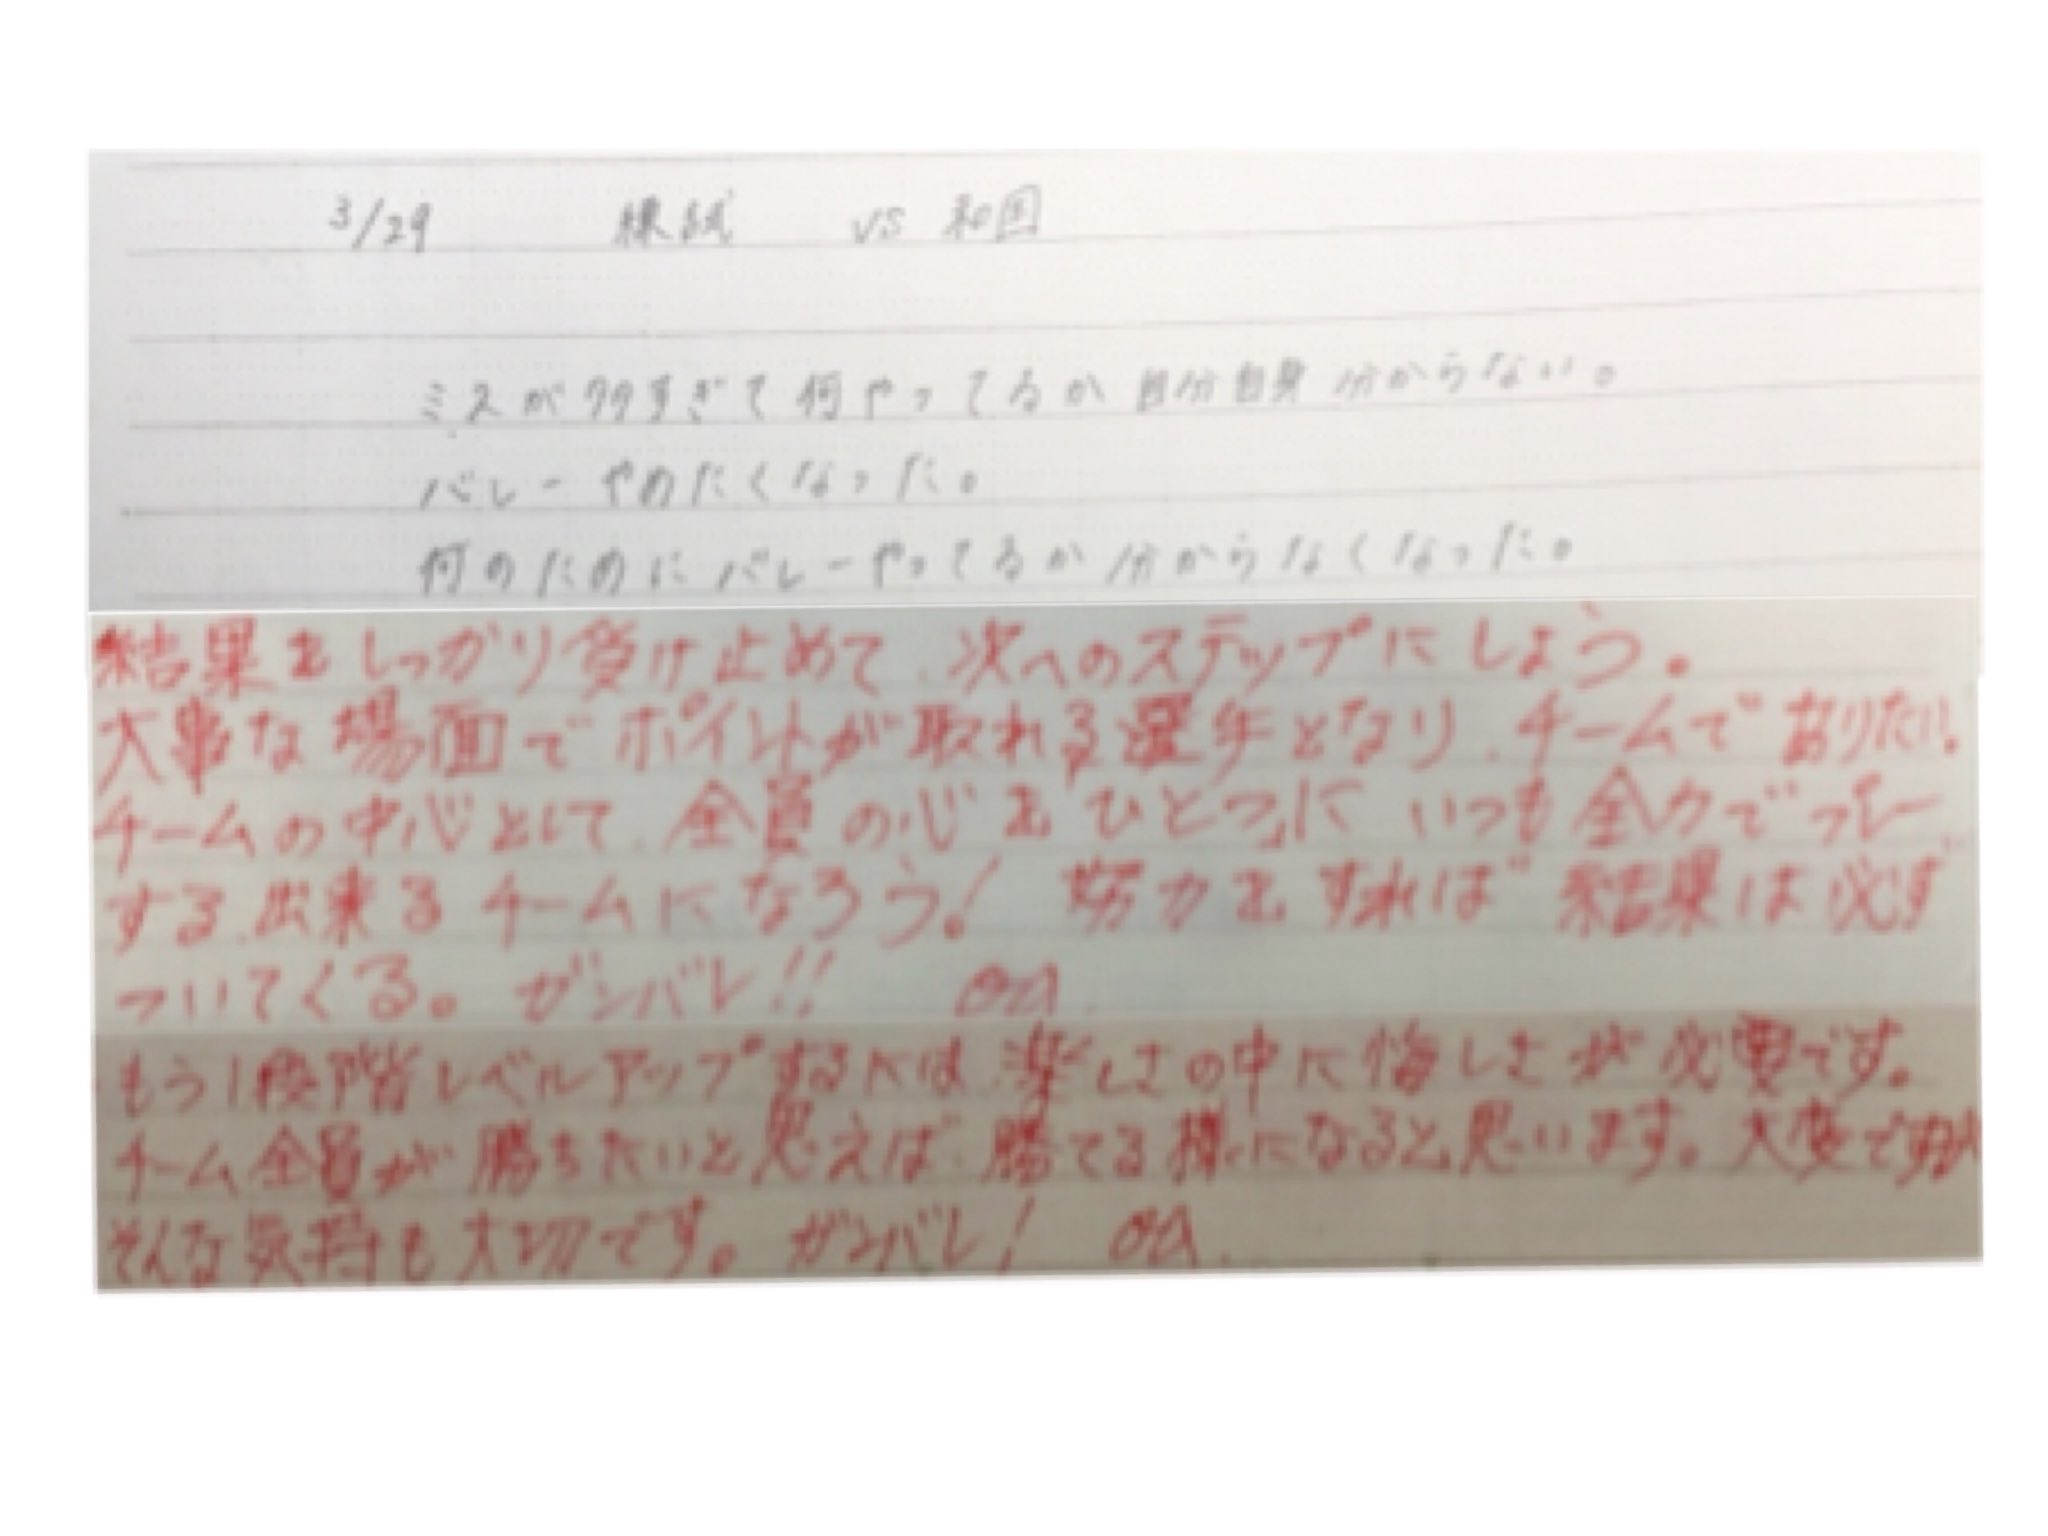 3/29 練試 vs 和国
ミスが多すぎて何やってるか自分自身分からない。
バレーやめたくなった。
何のためにバレーやってるか分からなくなった。
結果をしっかり負け止めて、次へのステップにしよう。
大事な場面でポイントが取れる選手となり、チームでありたい。
チームの中心として、全員の心を「ひとつ」に いつも全力でプレー
する、出来るチームになろう! 努力をすれば 結果は必ず
ついてくる。ガンバレ!!
もう1段階レベルアップするには、楽しさの中に悔しさが必要です。
チーム全員が勝ちたいと思えば、勝てる様になると思います。大変ですが
そんな気持も大切です。ガンバレ!